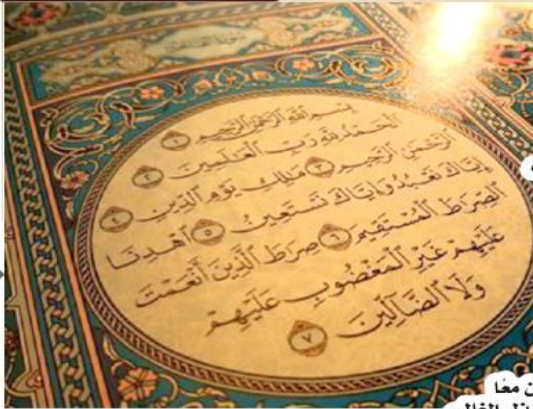 بِسْمِ ٱللَّهِ ٱلرَّحْمَٰنِ ٱلرَّحِيمِ ١
ٱلْحَمْدُ لِلَّهِ رَبِّ ٱلْعَٰلَمِينَ ٢
ٱلرَّحْمَٰنِ ٱلرَّحِيمِ ٣ مَٰلِكِ يَوْمِ ٱلدِّينِ ٤
إِيَّاكَ نَعْبُدُ وَإِيَّاكَ نَسْتَعِينُ ٥ ٱهْدِنَا
ٱلصِّرَٰطَ ٱلْمُسْتَقِيمَ ٦ صِرَٰطَ ٱلَّذِينَ أَنْعَمْتَ
عَلَيْهِمْ غَيْرِ ٱلْمَغْضُوبِ عَلَيْهِمْ
وَلَا ٱلضَّآلِّينَ ٧
معًا